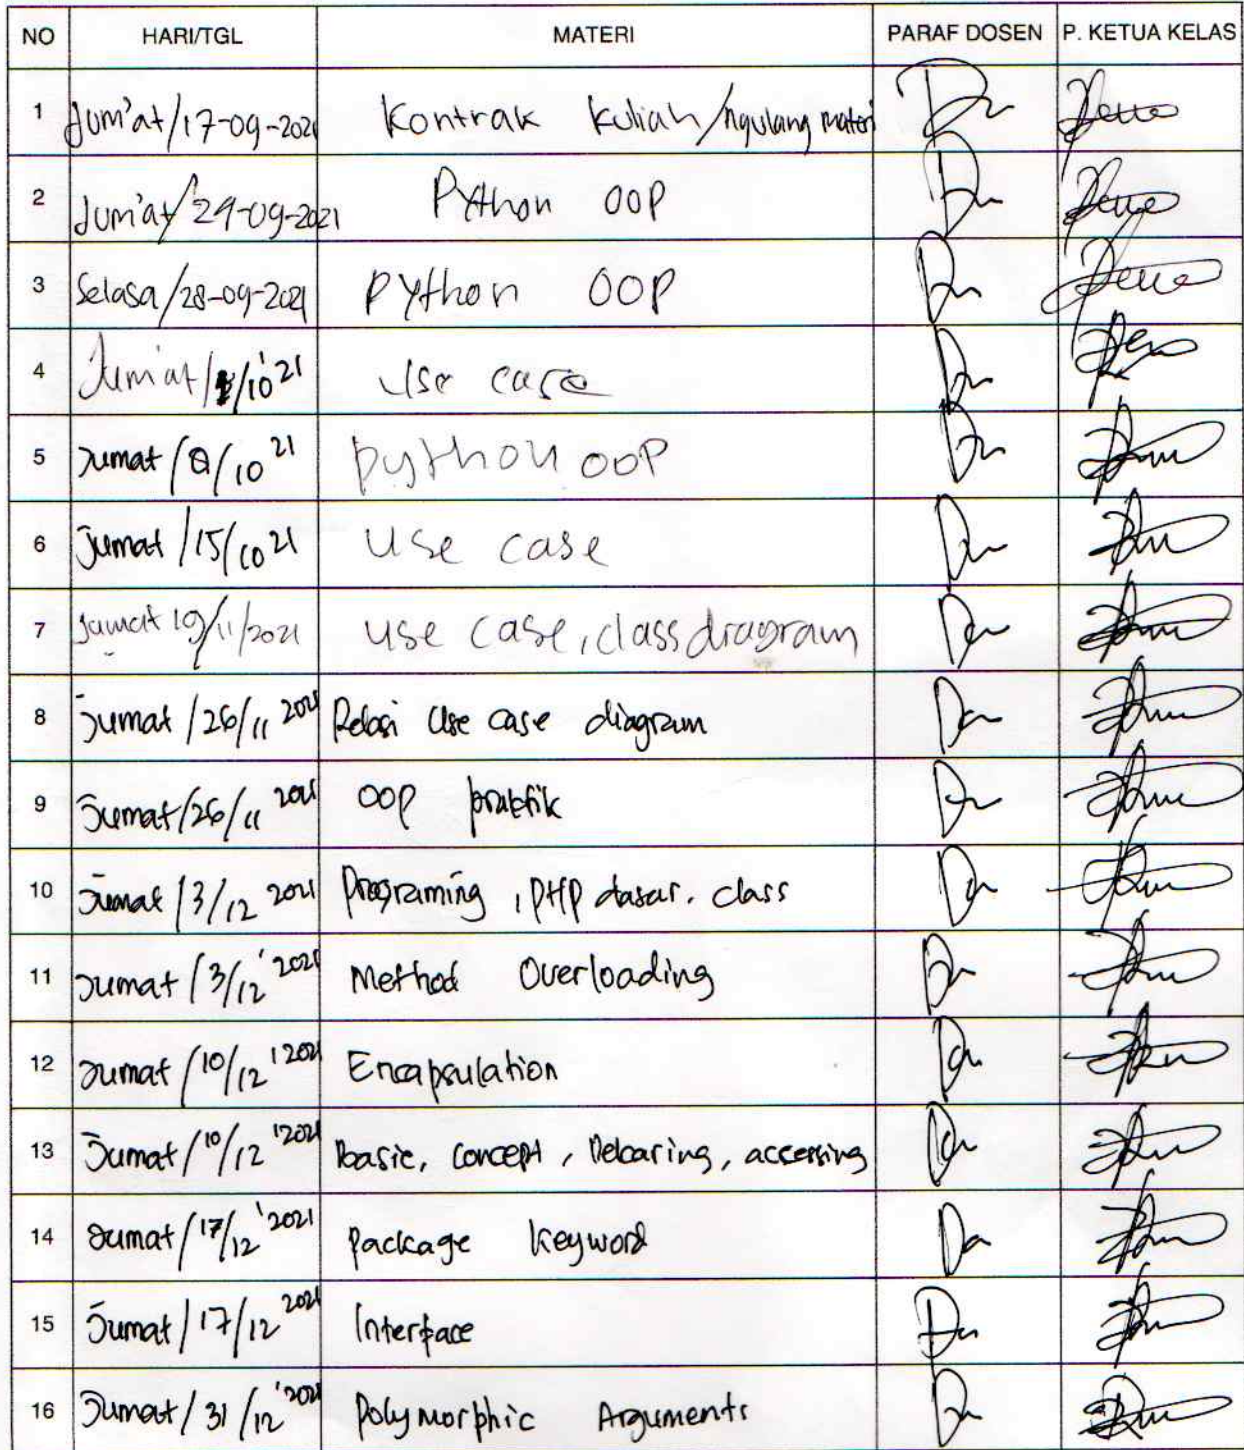 NO HARI/TGL MATERI PARAF DOSEN P. KETUA KELAS
1 Jum'at/17-09-2021 Kontrak Kuliah/ngulang materi
2 Jum'at/24-09-2021 Python OOP
3 Selasa/28-09-2021 Python OOP
4 Jum'at/1/10'21 Use case
5 Jumat/8/10 21 Python OOP
6 Jumat/15/10 21 Use case
7 Jumat 19/11/2021 Use case, class diagram
8 Jumat/26/11 2021 Relasi Use case diagram
9 Jumat/26/11 2021 OOP praktik
10 Jumat/3/12 2021 Programing, PHP dasar. class
11 Jumat/3/12'2021 Method Overloading
12 Jumat/10/12'2021 Encapsulation
13 Jumat/10/12'2021 Basic, concept, Delcaring, accessing
14 Jumat/17/12'2021 package keyword
15 Jumat/17/12 2021 Interface
16 Jumat/31/12'2021 Polymorphic Arguments